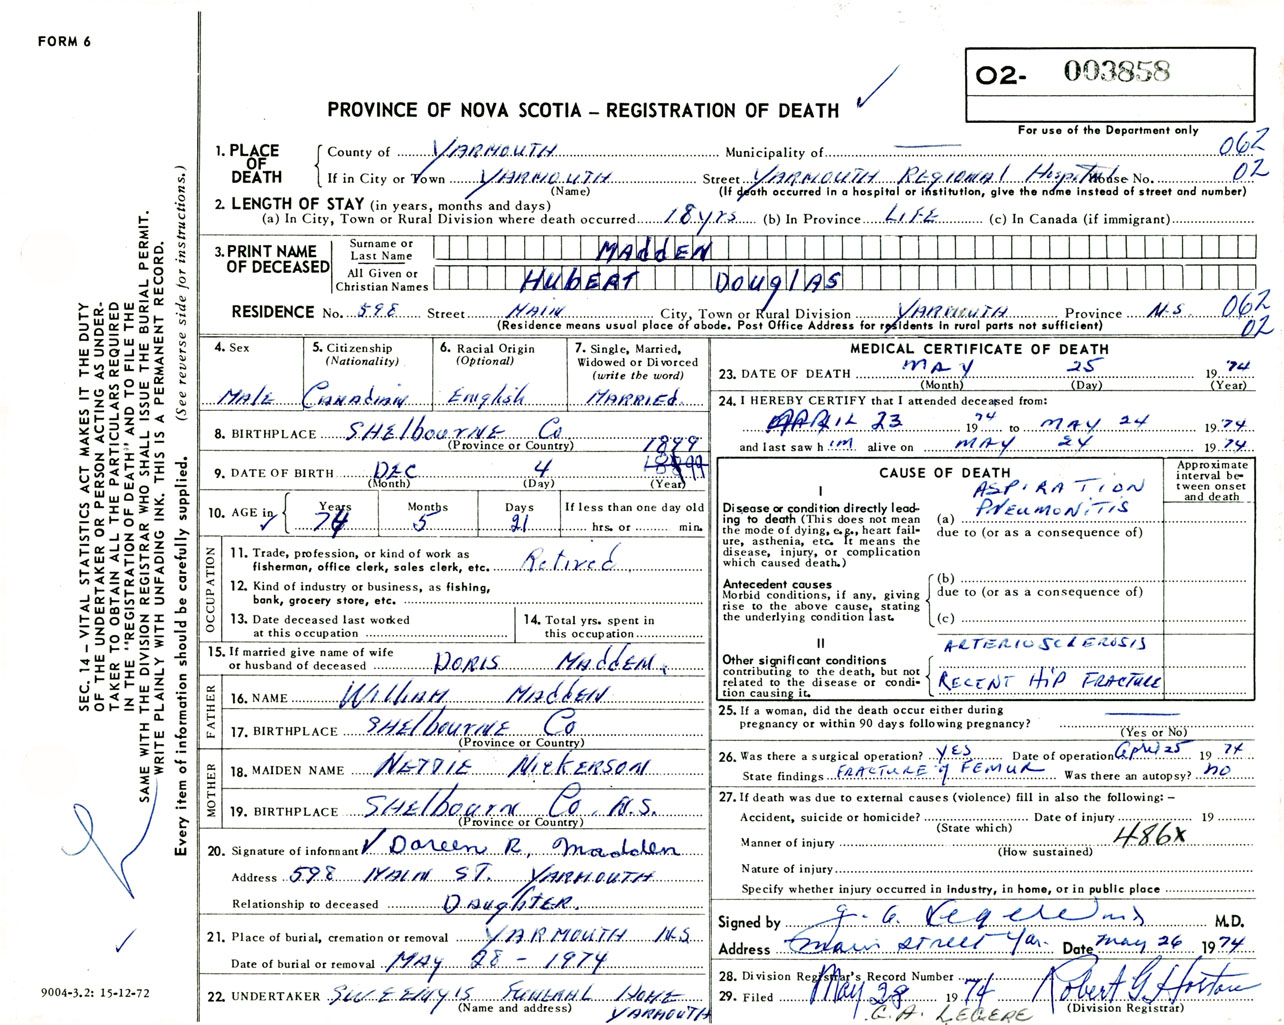 FORM 6
O2- 003858
For use of the Department only
PROVINCE OF NOVA SCOTIA – REGISTRATION OF DEATH ✓
062
02
1. PLACE OF DEATH
County of YARMOUTH Municipality of —
If in City or Town YARMOUTH Street YARMOUTH REGIONAL Hospital House No.
(Name) (If death occurred in a hospital or institution, give the name instead of street and number)
2. LENGTH OF STAY (in years, months and days)
(a) In City, Town or Rural Division where death occurred 18 yrs (b) In Province LIFE (c) In Canada (if immigrant)
3. PRINT NAME OF DECEASED
Surname or Last Name MADDEN
All Given or Christian Names HUBERT DOUGLAS
RESIDENCE No. 598 Street MAIN City, Town or Rural Division YARMOUTH Province N.S. 062
02
(Residence means usual place of abode. Post Office Address for residents in rural parts not sufficient)
4. Sex
MALE
5. Citizenship
(Nationality)
CANADIAN
6. Racial Origin
(Optional)
English
7. Single, Married,
Widowed or Divorced
(write the word)
MARRIED
8. BIRTHPLACE SHELBOURNE Co
(Province or Country)
1899
9. DATE OF BIRTH DEC 4
(Month) (Day) (Year)
10. AGE in ✓ Years Months Days If less than one day old
74 5 21 hrs. or min.
OCCUPATION
11. Trade, profession, or kind of work as
fisherman, office clerk, sales clerk, etc. Retired
12. Kind of industry or business, as fishing,
bank, grocery store, etc.
13. Date deceased last worked
at this occupation
14. Total yrs. spent in
this occupation
15. If married give name of wife
or husband of deceased DORIS MADDEN
FATHER
16. NAME WILLIAM MADDEN
17. BIRTHPLACE SHELBOURNE Co
(Province or Country)
MOTHER
18. MAIDEN NAME NETTIE NICKERSON
19. BIRTHPLACE SHELBOURN Co. N.S.
(Province or Country)
20. Signature of informant ✓ Doreen R. Madden
Address 598 MAIN ST. YARMOUTH
Relationship to deceased DAUGHTER.
21. Place of burial, cremation or removal YARMOUTH N.S.
Date of burial or removal MAY 28 - 1974
22. UNDERTAKER SWEENY'S FUNERAL HOME
(Name and address) YARMOUTH
MEDICAL CERTIFICATE OF DEATH
23. DATE OF DEATH MAY 25 1974
(Month) (Day) (Year)
24. I HEREBY CERTIFY that I attended deceased from:
APRIL 23 1974 to MAY 24 1974
and last saw him alive on MAY 24 1974
CAUSE OF DEATH
Approximate interval between onset and death
I
Disease or condition directly leading to death (This does not mean the mode of dying, e.g., heart failure, asthenia, etc. It means the disease, injury, or complication which caused death.)
ASPIRATION
(a) PNEUMONITIS
due to (or as a consequence of)
Antecedent causes
Morbid conditions, if any, giving rise to the above cause, stating the underlying condition last.
(b)
due to (or as a consequence of)
(c)
II
Other significant conditions
contributing to the death, but not related to the disease or condition causing it.
ARTERIOSCLEROSIS
RECENT HIP FRACTURE
25. If a woman, did the death occur either during
pregnancy or within 90 days following pregnancy? —
(Yes or No)
26. Was there a surgical operation? YES Date of operation April 25 1974
State findings FRACTURE of FEMUR Was there an autopsy? no
27. If death was due to external causes (violence) fill in also the following: –
Accident, suicide or homicide? Date of injury 19
(State which)
Manner of injury 486x
(How sustained)
Nature of injury
Specify whether injury occurred in industry, in home, or in public place
Signed by M.D.
Address Main Street Yar. Date May 26 1974
28. Division Registrar's Record Number
29. Filed May 28 1974 Robert G. Horton
(Division Registrar)
C.A. LEGERE
SEC. 14 – VITAL STATISTICS ACT MAKES IT THE DUTY
OF THE UNDERTAKER OR PERSON ACTING AS UNDER-
TAKER TO OBTAIN ALL THE PARTICULARS REQUIRED
IN THE "REGISTRATION OF DEATH" AND TO FILE THE
SAME WITH THE DIVISION REGISTRAR WHO SHALL ISSUE THE BURIAL PERMIT.
WRITE PLAINLY WITH UNFADING INK. THIS IS A PERMANENT RECORD.
Every item of information should be carefully supplied. (See reverse side for instructions.)
9004-3.2: 15-12-72